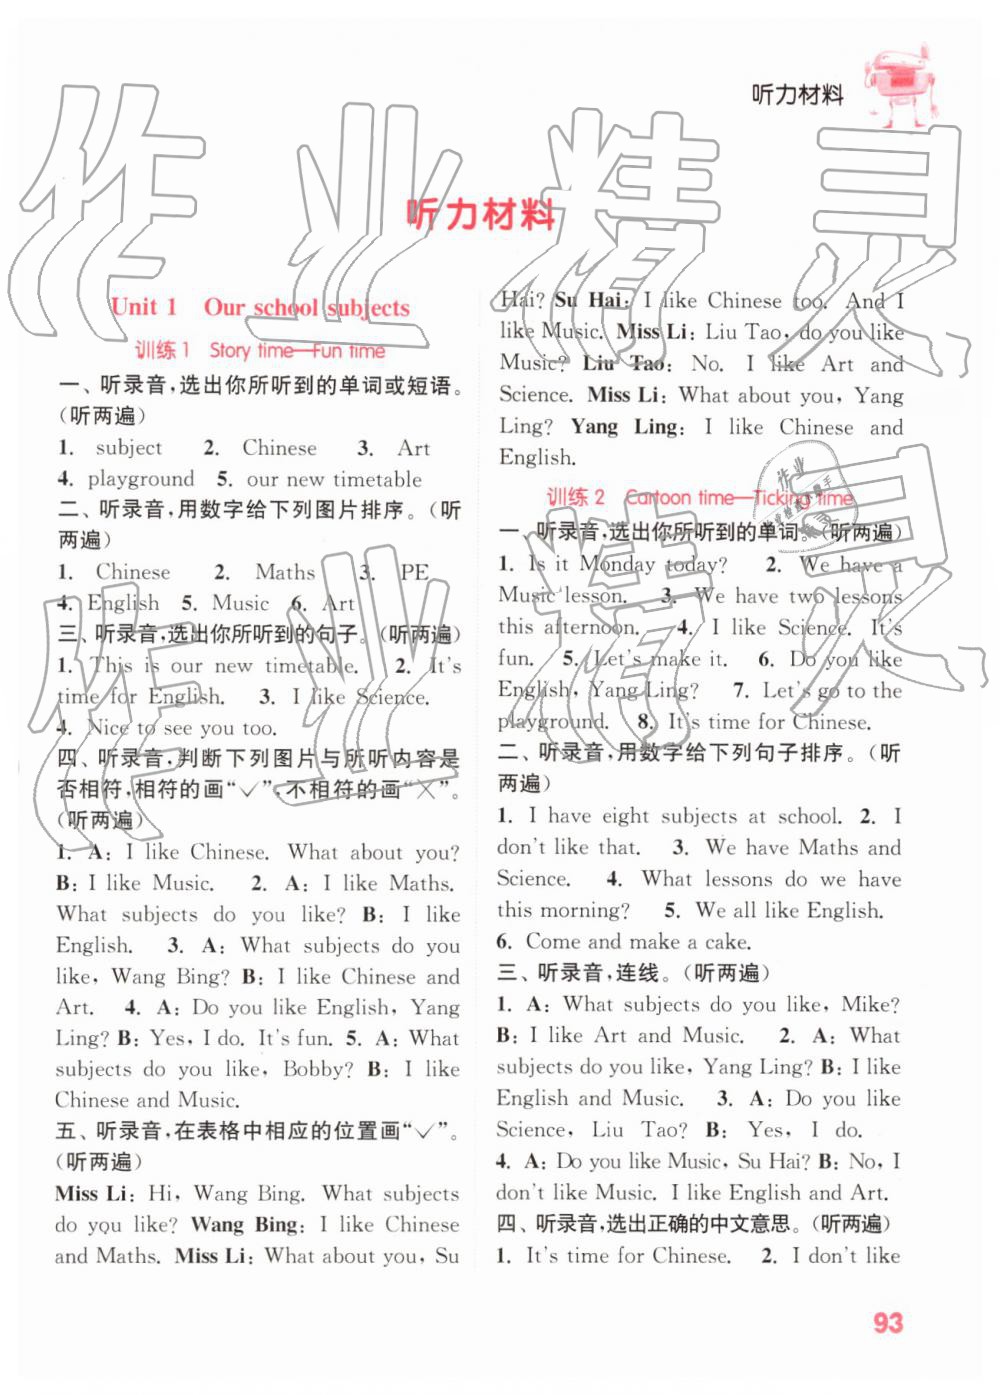 听力材料
听力材料
Unit 1 Our school subjects
训练1 Story time—Fun time
一、听录音,选出你所听到的单词或短语。
(听两遍)
1. subject 2. Chinese 3. Art
4. playground 5. our new timetable
二、听录音,用数字给下列图片排序。(听
两遍)
1. Chinese 2. Maths 3. PE
4. English 5. Music 6. Art
三、听录音,选出你所听到的句子。(听两遍)
1. This is our new timetable. 2. It's
time for English. 3. I like Science.
4. Nice to see you too.
四、听录音,判断下列图片与所听内容是
否相符,相符的画“✓”,不相符的画“✗”。
(听两遍)
1. A: I like Chinese. What about you?
B: I like Music. 2. A: I like Maths.
What subjects do you like? B: I like
English. 3. A: What subjects do you
like, Wang Bing? B: I like Chinese and
Art. 4. A: Do you like English, Yang
Ling? B: Yes, I do. It's fun. 5. A: What
subjects do you like, Bobby? B: I like
Chinese and Music.
五、听录音,在表格中相应的位置画“✓”。
(听两遍)
Miss Li: Hi, Wang Bing. What subjects
do you like? Wang Bing: I like Chinese
and Maths. Miss Li: What about you, Su
Hai? Su Hai: I like Chinese too. And I
like Music. Miss Li: Liu Tao, do you like
Music? Liu Tao: No. I like Art and
Science. Miss Li: What about you, Yang
Ling? Yang Ling: I like Chinese and
English.
训练2 Cartoon time—Ticking time
一、听录音,选出你所听到的单词。(听两遍)
1. Is it Monday today? 2. We have a
Music lesson. 3. We have two lessons
this afternoon. 4. I like Science. It's
fun. 5. Let's make it. 6. Do you like
English, Yang Ling? 7. Let's go to the
playground. 8. It's time for Chinese.
二、听录音,用数字给下列句子排序。(听
两遍)
1. I have eight subjects at school. 2. I
don't like that. 3. We have Maths and
Science. 4. What lessons do we have
this morning? 5. We all like English.
6. Come and make a cake.
三、听录音,连线。(听两遍)
1. A: What subjects do you like, Mike?
B: I like Art and Music. 2. A: What
subjects do you like, Yang Ling? B: I like
English and Music. 3. A: Do you like
Science, Liu Tao? B: Yes, I do.
4. A: Do you like Music, Su Hai? B: No, I
don't like Music. I like English and Art.
四、听录音,选出正确的中文意思。(听两遍)
1. It's time for Chinese. 2. I don't like
93
作业精灵
作业精灵